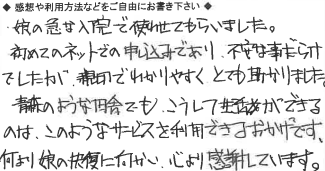 ◆ 感想や利用方法などをご自由にお書き下さい ◆
娘の急な入院で使わせてもらいました。
初めてのネットでの申し込みであり、不安な事だらけ
でしたが、親切でわかりやすく、とても助かりました。
青森のような田舎でも、こうして生活ができる
のは、このようなサービスを利用できるおかげです。
何より娘の快復に向かい、心より感謝しています。